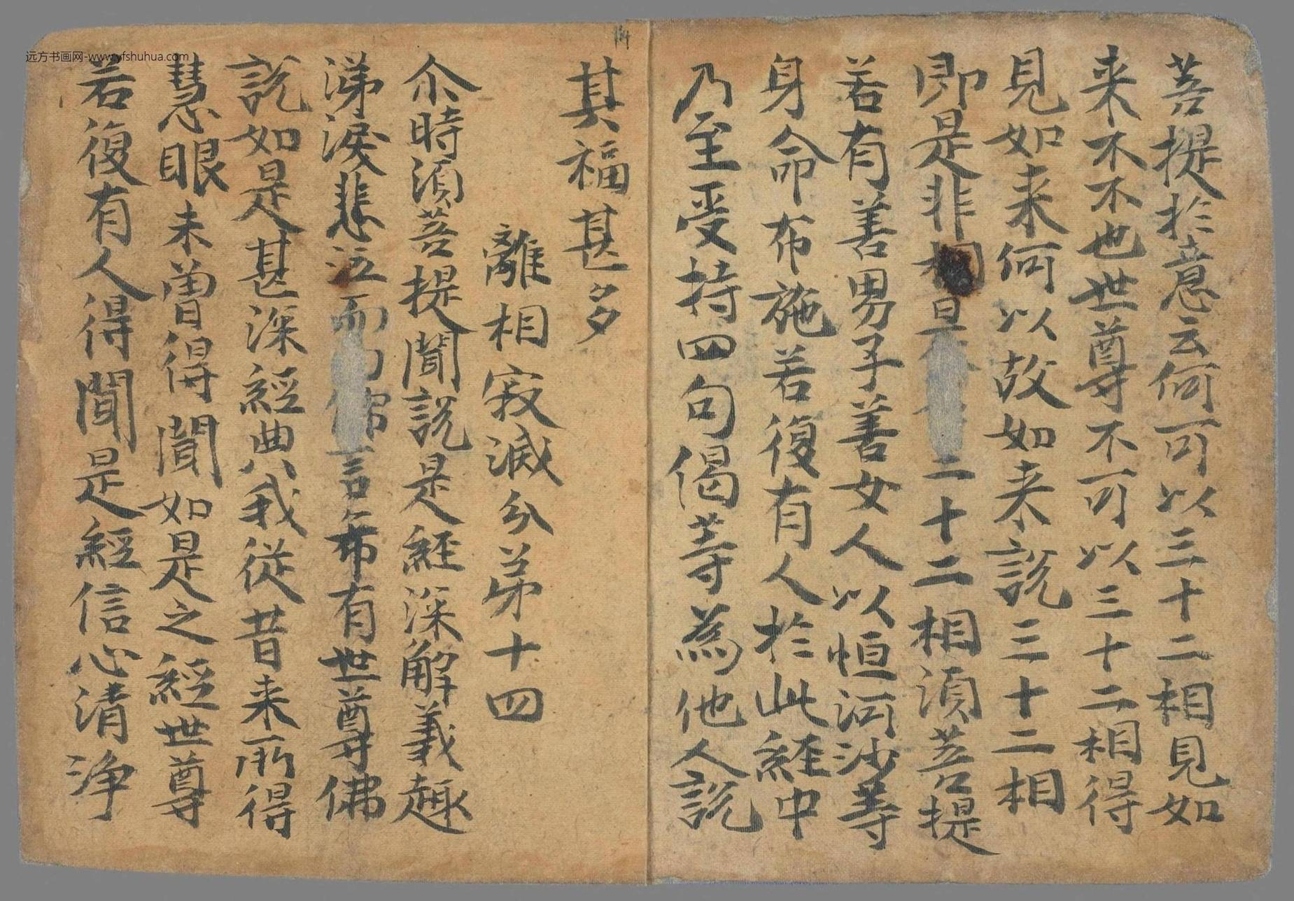 菩提於意云何可以三十二相見如
来不不也世尊不可以三十二相得
見如来何以故如来説三十二相
即是非相是十二相須菩提
若有善男子善女人以恒河沙等
身命布施若復有人於此経中
乃至受持四句偈等為他人説
其福甚多
離相寂滅分弟十四
尒時須菩提聞説是経深解義趣
涕淚悲泣而佛言希有世尊佛
説如是甚深經典我從昔来所得
慧眼未曾得聞如是之經世尊
若復有人得聞是經信心清浄
远方书画网-www.yfshuhua.com